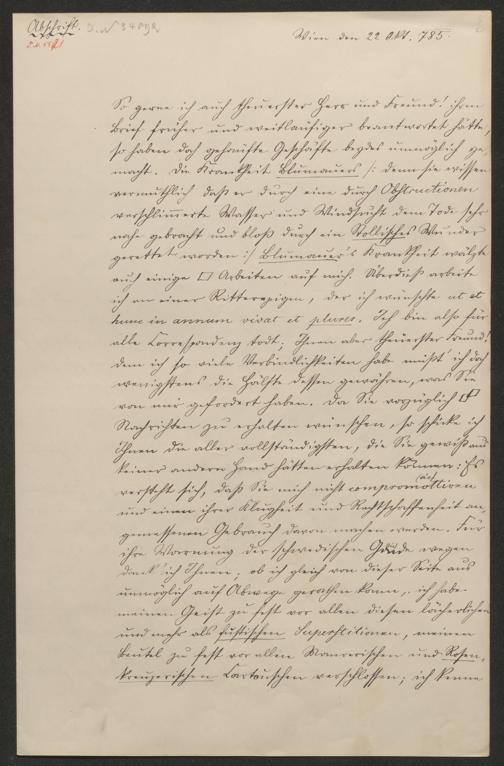 Abschrift. I. N 34092
Wien den 22 Okt. 785.
So gerne ich auch theuerster Herr und Freund! ihren
Brief früher und weitläufiger beantwortet hätte,
so haben doch gehäufte Geschäfte beydes unmöglich ge-
macht. Die Krankheit Blumauers /: denn sie wissen
vermuthlich daß er durch eine durch Obstructionen
verschlimmerte Wasser und Windsucht dem Tode sehr
nahe gebracht und bloß durch ein Stollisches Wunder
gerettet worden :/ Blumauer's Krankheit wälzte
auch einige □ Arbeiten auf mich. Überdieß arbeite
ich an einer Ritterepigen, der ich wünschte ut et
hunc in annum vivat et plures. Ich bin also für
alle Correspondenz todt; Ihnen aber theuerster Freund!
dem ich so viele Verbindlichkeiten habe mußt ich doch
wenigstens die Hälfte dessen gewähren, was Sie
von mir gefordert haben. Da Sie vorzüglich
Nachrichten zu erhalten wünschen, so schicke ich
Ihnen die aller vollständigsten, die Sie gewiß aus
keiner andern Hand hätten erhalten können: Es
versteht sich, daß Sie mich nicht compromottiren
und einen ihrer Klugheit und Rechtschaffenheit an-
gemessenen Gebrauch davon machen werden. Für
ihre Warnung der schwedischen wegen
dank' ich Ihnen, ob ich gleich von dieser Seite aus
unmöglich auf Abwege gerathen kann, ich habe
meinen Geist zu fest vor allen diesen lächerlichen
und mehr als fustischen Superstitionen, meinen
Beutel zu fest vor allen Maurerischen und Rosen-
kreuzerischen Cartouschen verschlossen; ich kenne